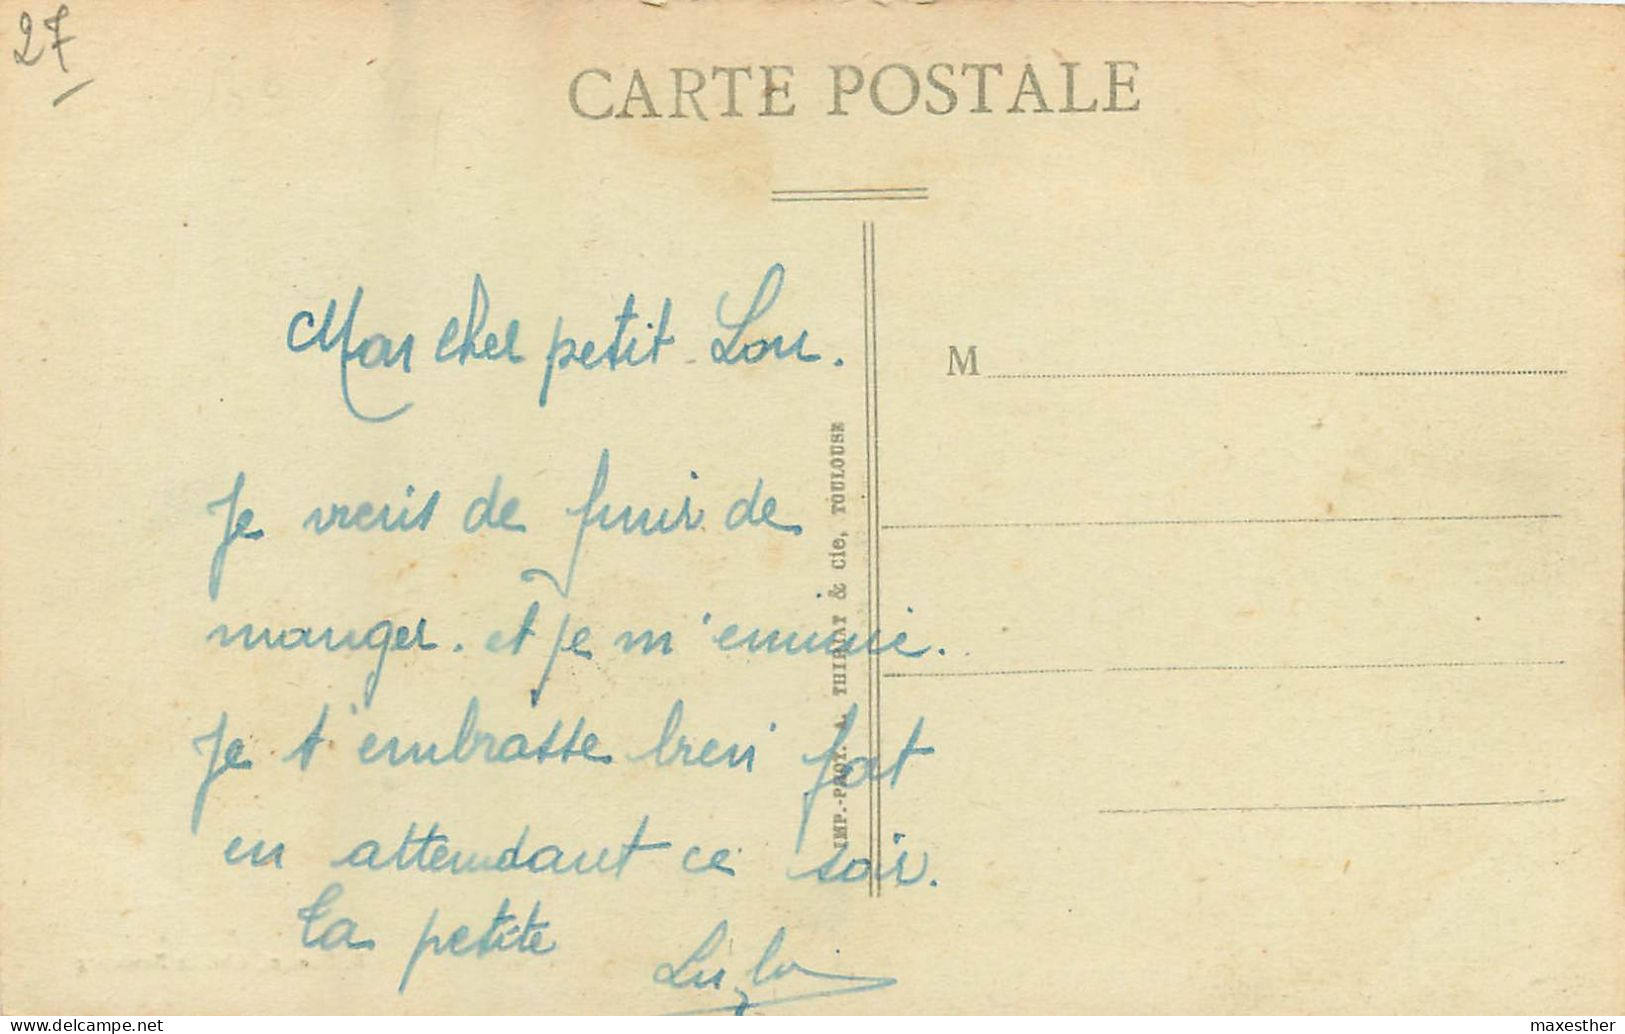 27
CARTE POSTALE
Mon cher petit Lou.
M
Je viens de finir de
manger. et je m'ennuie.
Je t'embrasse bien fort
en attendant ce soir.
Ta petite
IMP.-PHOT. A. THIRIAT & Cie, TOULOUSE
maxesther